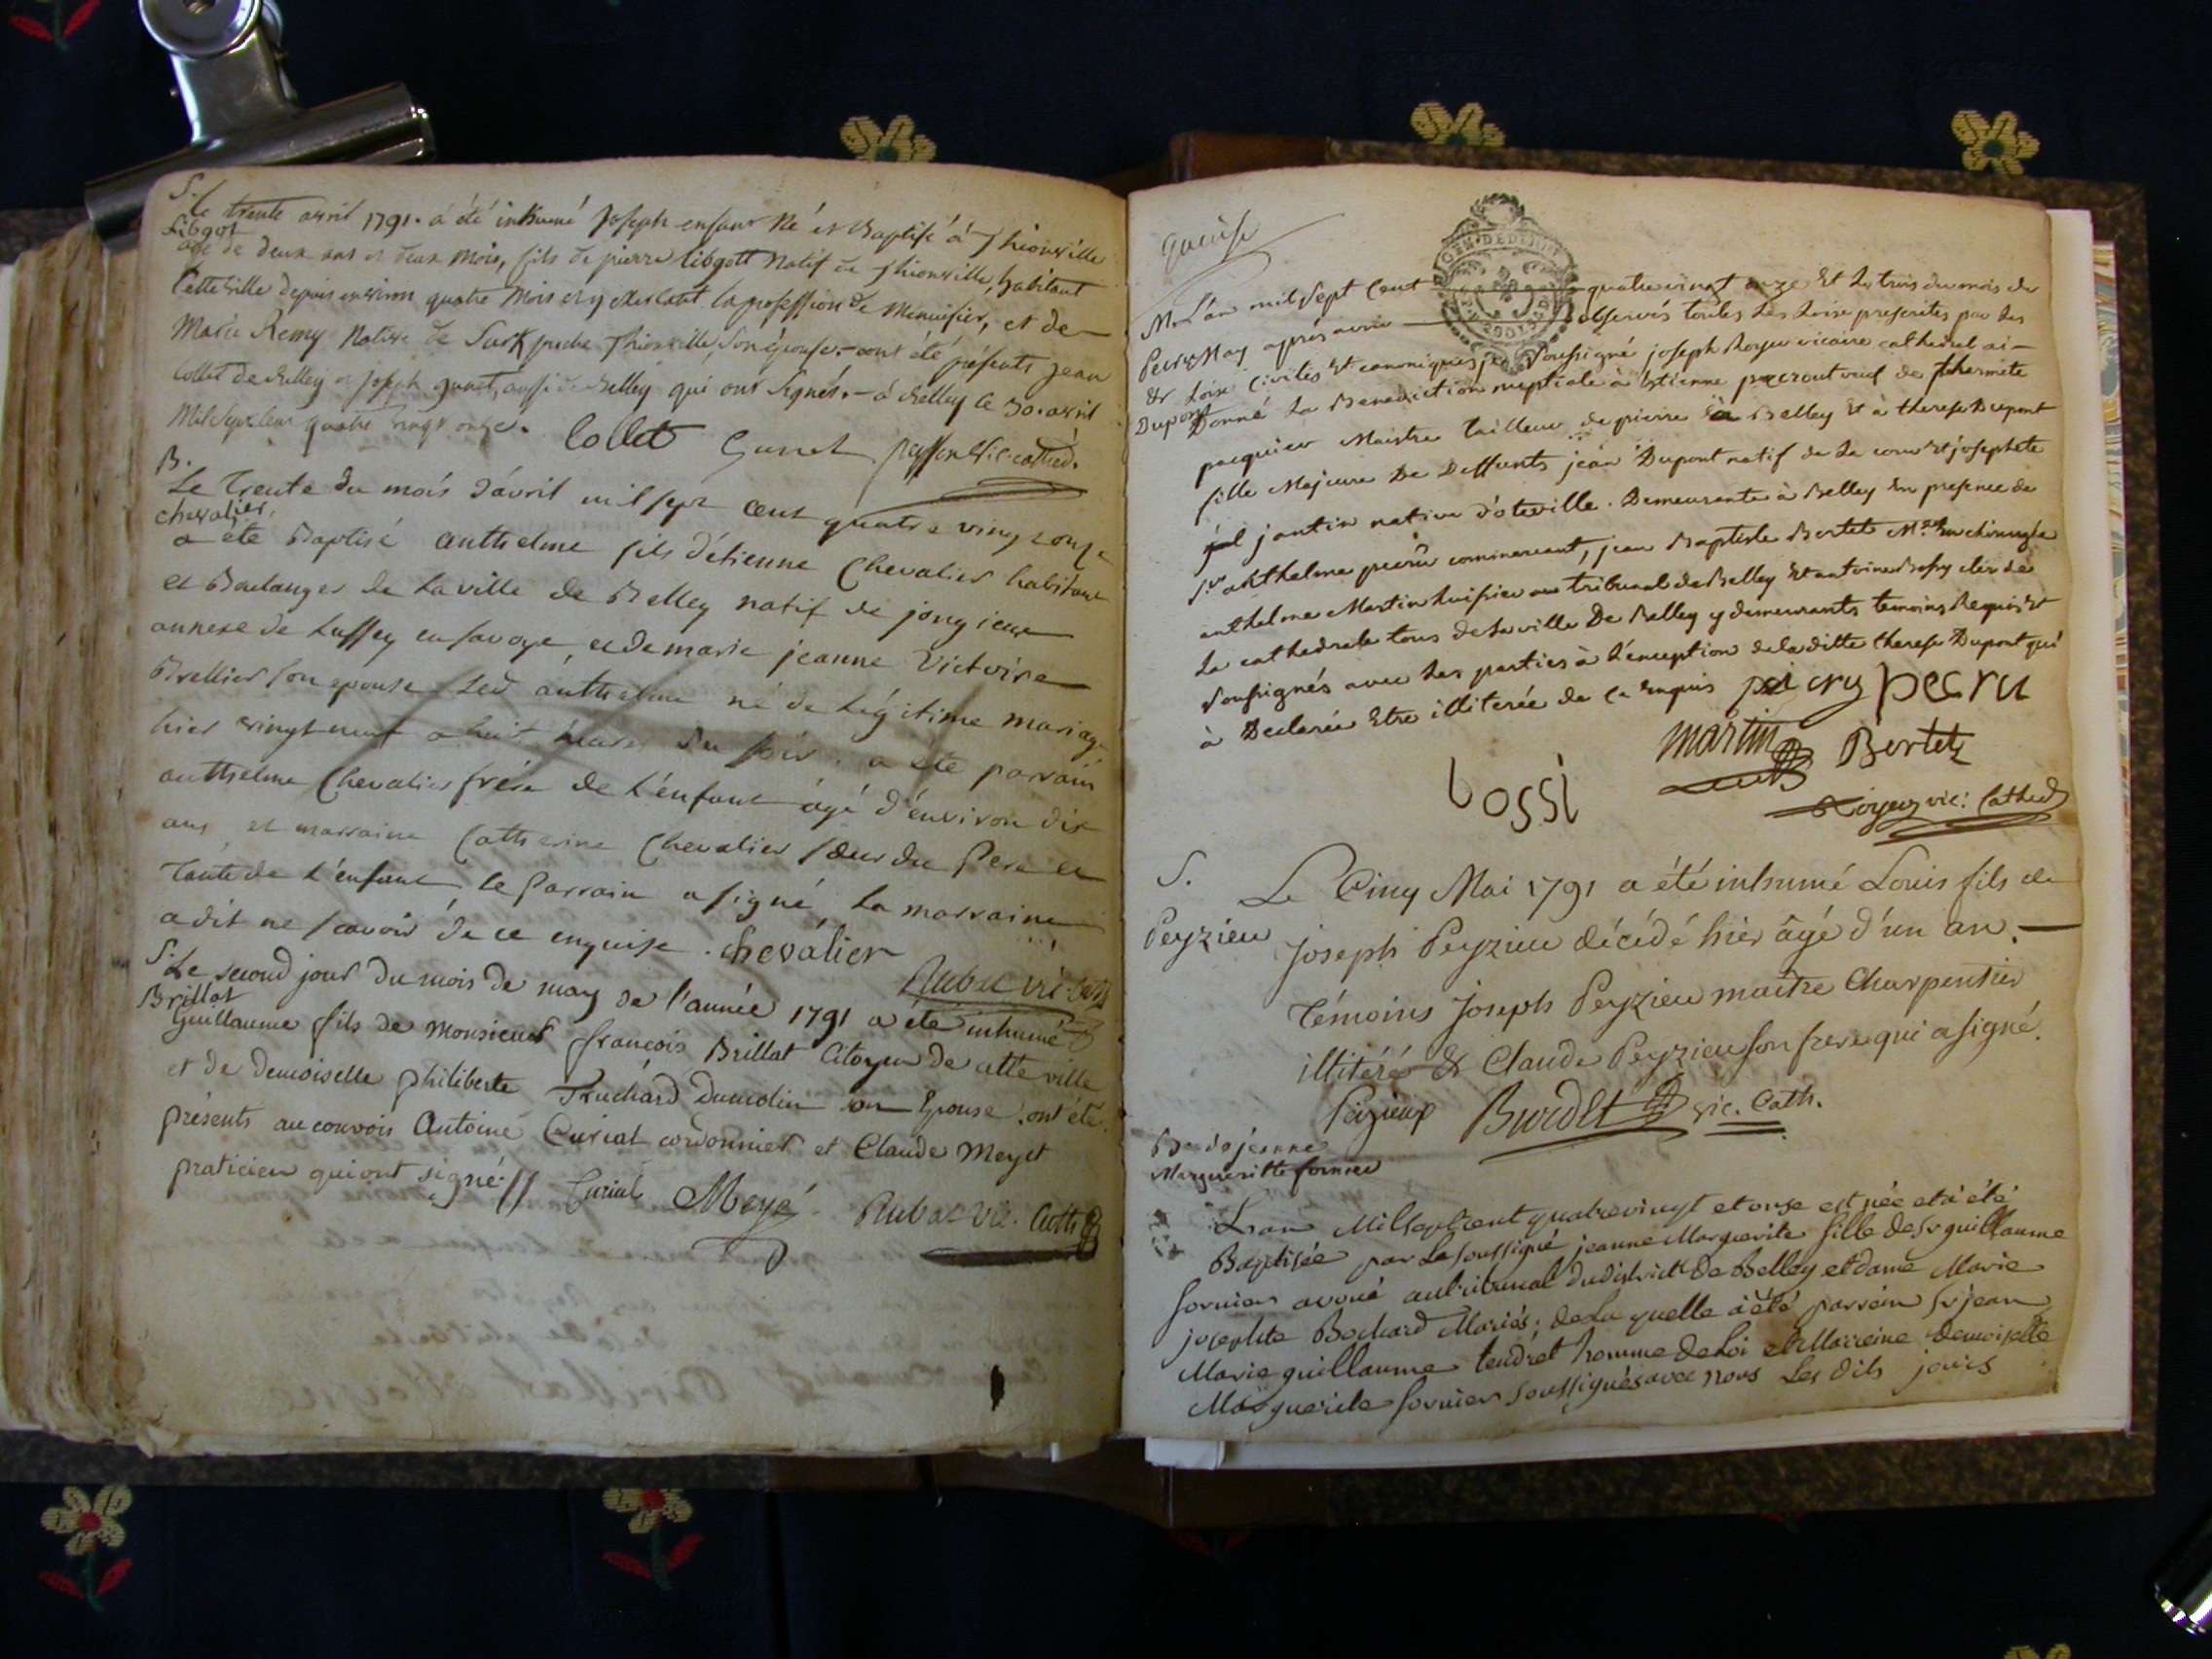 S. Le trente avril 1791. a été inhumé Joseph enfant Né et Baptisé à Thionville
Libgot
agé de deux ans et deux mois, fils de pierre libgott Natif de Thionville, habitant
Cette ville depuis environ quatre Mois et y la profession de Menuisier, et de
Marie Remy Native de Sark proche Thionville, Son épouse. – ont été présents jean
Collet de Belley et Joseph gunet, aussi de Belley qui ont Signés. – à Belley le 30. avril
Mil Sept Cent quatre vingt onze. Collet Gunet vic. cathed.
B.
Le Trente du mois d'avril mil sept cent quatre vingt onze
chevalier.
a eté Baptisé anthelme fils d'étienne Chevalier habitant
et Boulanger de la ville de Belley natif de jongieux
annexe de Luffey en Savoye, et de marie jeanne Victoire
Brellier son epouse led anthelme né de légitime mariage
hier vingt neuf a huit heures du soir. a eté parrain
anthelme Chevalier frére de l'énfant âgé d'énviron dix
ans et marraine Catherine Chevalier sœur du Pere et
Tante de l'énfant le Parrain a signé, la marraine
a dit ne scavoir de ce enquise. chevalier
Rubat vic. Cath
S. Le second jour du mois de may de l'année 1791 a été inhumé
Brillat
Guillaume fils de Monsieur françois Brillat Citoyen de cette ville
et de demoiselle philiberte Truchard dumolin son Epouse. ont été
présents au convois Antoine Curial cordonnier et Claude Meyet
praticien qui ont signé // Curial Meyé Rubat vic. Cath
M. L'an mil Sept Cent quatre vingt onze Et le trois du mois de
Peiry May aprés avoir observés toutes les loix prescrites par les
& Loix Civiles Et canoniques je Soussigné joseph Royer vicaire cathedral ai
Dupont Donné la Benediction nuptiale à Estienne veuf de
pacquier Maistre tailleur de pierre à Belley Et à therese Dupont
fille Majeure De Deffunts jean Dupont natif de la cour Et josephete
jantin native d'oteville. Demeurante à Belley En presence de
Sr anthelme commercant, jean Baptiste Bertet Me En chirurgie
anthelme Martin huissier au tribunal de Belley Et antoine Bossy clér de
la cathedrale tous de la ville De Belley y demeurants temoins Requis Et
Soussignés avec les parties à l'éxception de la ditte therese Dupont qui
à Declarée Etre illiterée de ce Enquis
martin Bertet
bossi
Royer vic: Cathed
S.
Le Cinq Mai 1791 a été inhumé Louis fils de
Peyzieu
Joseph Peyzieu décédé hier âgé d'un an. –
Témoins Joseph Peyzieu maître Charpentier
illitéré & Claude Peyzieu son frere qui a signé.
Peizieux Burdet vic. Cath.
B. de jeanne
Margueritte fornier
L'an Mil sept cent quatre vingt et onse est née et à été
Baptisée par Le soussigné jeanne Marguerite fille de Sr guillaume
fornier avoué au tribunal du district de Belley et dame Marie
josephte Bochard Mariés; de La quelle à été parrein Sr jean
Marie guillaume tendret homme de Loi et Marreine Demoiselle
Marguerite fornier soussignés avec nous Les dits jours